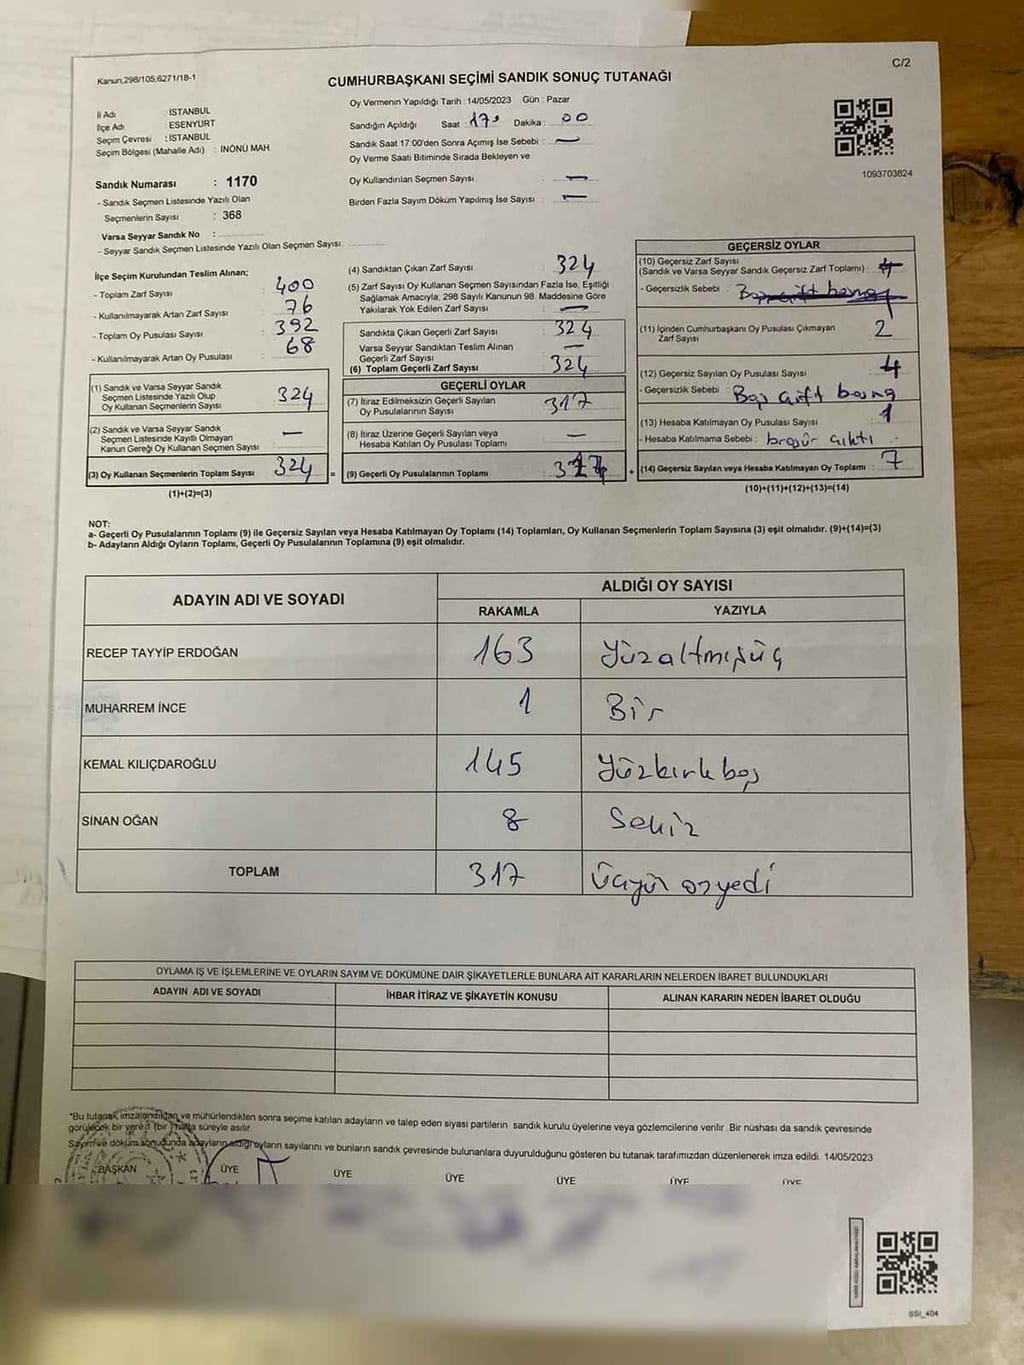 Kanun;298/105;6271/18-1
C/2
CUMHURBAŞKANI SEÇİMİ SANDIK SONUÇ TUTANAĞI
İl Adı : İSTANBUL
İlçe Adı : ESENYURT
Seçim Çevresi : İSTANBUL
Seçim Bölgesi (Mahalle Adı) : İNÖNÜ MAH.
Sandık Numarası : 1170
- Sandık Seçmen Listesinde Yazılı Olan
Seçmenlerin Sayısı : 368
Varsa Seyyar Sandık No :
- Seyyar Sandık Seçmen Listesinde Yazılı Olan Seçmen Sayısı:
Oy Vermenin Yapıldığı Tarih : 14/05/2023 Gün : Pazar
Sandığın Açıldığı Saat : 17 Dakika : 00
Sandık Saat 17:00'den Sonra Açımış İse Sebebi : —
Oy Verme Saati Bitiminde Sırada Bekleyen ve
Oy Kullandırılan Seçmen Sayısı : —
Birden Fazla Sayım Döküm Yapılmış İse Sayısı : —
1093703824
İlçe Seçim Kurulundan Teslim Alınan;
- Toplam Zarf Sayısı : 400
- Kullanılmayarak Artan Zarf Sayısı : 76
- Toplam Oy Pusulası Sayısı : 392
- Kullanılmayarak Artan Oy Pusulası : 68
(1) Sandık ve Varsa Seyyar Sandık
Seçmen Listesinde Yazılı Olup
Oy Kullanan Seçmenlerin Sayısı : 324
(2) Sandık ve Varsa Seyyar Sandık
Seçmen Listesinde Kayıtlı Olmayan
Kanun Gereği Oy Kullanan Seçmen Sayısı : —
(3) Oy Kullanan Seçmenlerin Toplam Sayısı : 324 =
(1)+(2)=(3)
(4) Sandıktan Çıkan Zarf Sayısı : 324
(5) Zarf Sayısı Oy Kullanan Seçmen Sayısından Fazla İse, Eşitliği
Sağlamak Amacıyla; 298 Sayılı Kanunun 98. Maddesine Göre
Yakılarak Yok Edilen Zarf Sayısı : —
Sandıkta Çıkan Geçerli Zarf Sayısı : 324
Varsa Seyyar Sandıktan Teslim Alınan
Geçerli Zarf Sayısı : —
(6) Toplam Geçerli Zarf Sayısı : 324
GEÇERLİ OYLAR
(7) İtiraz Edilmeksizin Geçerli Sayılan
Oy Pusulalarının Sayısı : 317
(8) İtiraz Üzerine Geçerli Sayılan veya
Hesaba Katılan Oy Pusulası Toplamı : —
(9) Geçerli Oy Pusulalarının Toplamı : 317 +
GEÇERSİZ OYLAR
(10) Geçersiz Zarf Sayısı
(Sandık ve Varsa Seyyar Sandık Geçersiz Zarf Toplamı) : 4
- Geçersizlik Sebebi :
(11) İçinden Cumhurbaşkanı Oy Pusulası Çıkmayan
Zarf Sayısı : 2
(12) Geçersiz Sayılan Oy Pusulası Sayısı : 4
- Geçersizlik Sebebi : Boş çift basma
(13) Hesaba Katılmayan Oy Pusulası Sayısı : 1
- Hesaba Katılmama Sebebi : broşür çıktı
(14) Geçersiz Sayılan veya Hesaba Katılmayan Oy Toplamı : 7
(10)+(11)+(12)+(13)=(14)
NOT:
a- Geçerli Oy Pusulalarının Toplamı (9) ile Geçersiz Sayılan veya Hesaba Katılmayan Oy Toplamı (14) Toplamları, Oy Kullanan Seçmenlerin Toplam Sayısına (3) eşit olmalıdır. (9)+(14)=(3)
b- Adayların Aldığı Oyların Toplamı, Geçerli Oy Pusulalarının Toplamına (9) eşit olmalıdır.
ADAYIN ADI VE SOYADI
ALDIĞI OY SAYISI
RAKAMLA YAZIYLA
RECEP TAYYİP ERDOĞAN 163 Yüzaltmışüç
MUHARREM İNCE 1 Bir
KEMAL KILIÇDAROĞLU 145 Yüzkırkbeş
SİNAN OĞAN 8 Sekiz
TOPLAM 317 Üçyüz onyedi
OYLAMA İŞ VE İŞLEMLERİNE VE OYLARIN SAYIM VE DÖKÜMÜNE DAİR ŞİKAYETLERLE BUNLARA AİT KARARLARIN NELERDEN İBARET BULUNDUKLARI
ADAYIN ADI VE SOYADI İHBAR İTİRAZ VE ŞİKAYETİN KONUSU ALINAN KARARIN NEDEN İBARET OLDUĞU
"Bu tutanak imzalandıktan ve mühürlendikten sonra seçime katılan adayların ve talep eden siyasi partilerin sandık kurulu üyelerine veya gözlemcilerine verilir. Bir nüshası da sandık çevresinde
görülecek bir yere 1 (bir) hafta süreyle asılır.
Sayım ve döküm sonucunda adayların aldığı oyların sayılarını ve bunların sandık çevresinde bulunanlara duyurulduğunu gösteren bu tutanak tarafımızdan düzenlenerek imza edildi. 14/05/2023
BAŞKAN ÜYE ÜYE ÜYE ÜYE ÜYE ÜYE
SSI_404